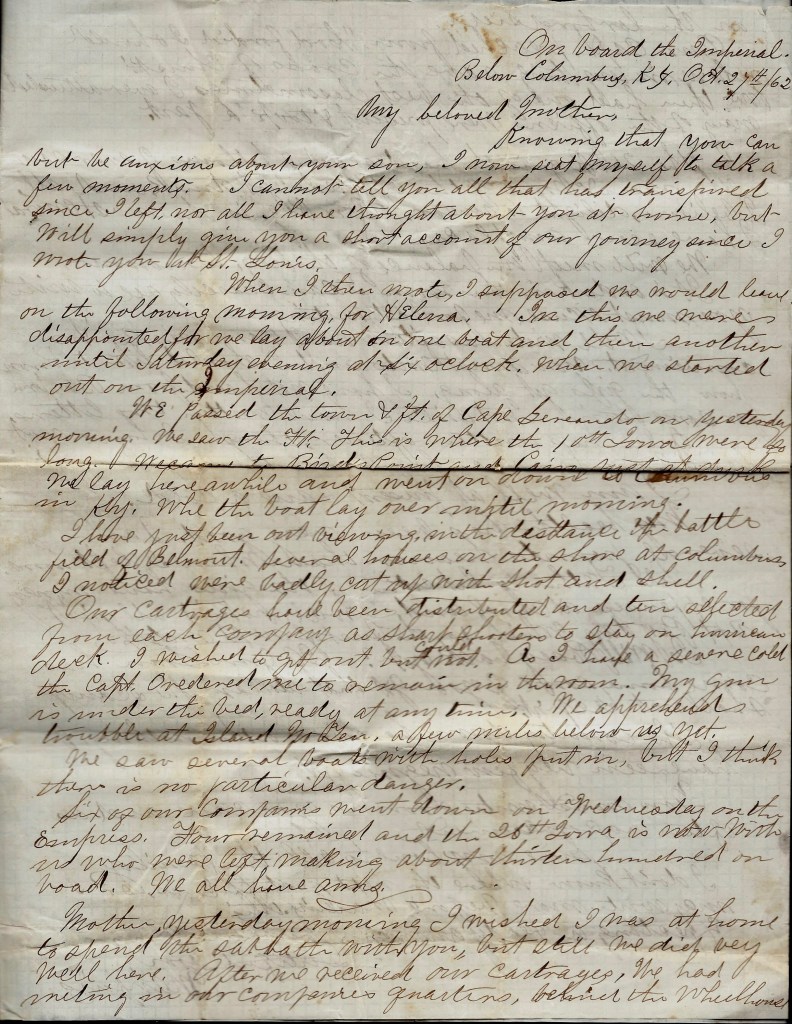 On board the Imperial.
Below Columbus, K.Y. Oct. 27th/62
My beloved Mother,
Knowing that you can
but be anxious about your son, I now seat myself to talk a
few moments. I cannot tell you all that has transpired
since I left, nor all I have thought about you at home, but
Will simply give you a short account of our journey since I
wrote you at St. Louis.
When I then wrote, I supposed we would leave
on the following morning, for Helena. In this we were
disappointed, for we lay about on one boat and then another
until Saturday evening at six oclock. When we started
out on the Imperial.
WE Passed the town & ft. of Cape on Yesterday
morning. We saw the Ft. This is where the 10th Iowa were so
long. We came to Birds Point and Cairo just at
We lay here awhile and went on down to
in Ky. the boat lay over until morning.
I have just been out viewing, in the distance the battle
field of Belmont. Several houses on the shore at Columbus,
I noticed were badly cut up with shot and shell.
Our Cartrages have been distributed and ten selected
from each Company as sharp shooters to stay on hurican
deck. I wished to get out but could not. As I have a severe cold
the Capt. Oredered me to remain in the room. My gun
is under the bed, ready at any time. We apprehend
troubble at Island No Ten, a few miles below us yet.
We saw several boats with holes put in, but I think
there is no particular danger.
Six of our Companies went down on Wednesday on the
Empress. Four remained and the 26th Iowa is now With
us who were left, making about thirten hundred on
boad. We all have arms.
Mother, yesterday morning I wished I was at home
to spend the sabbath with you, but still we did vey
Well here. After we received our cartrages, We had
meting in our companies quarters, behind the Wheelhouse